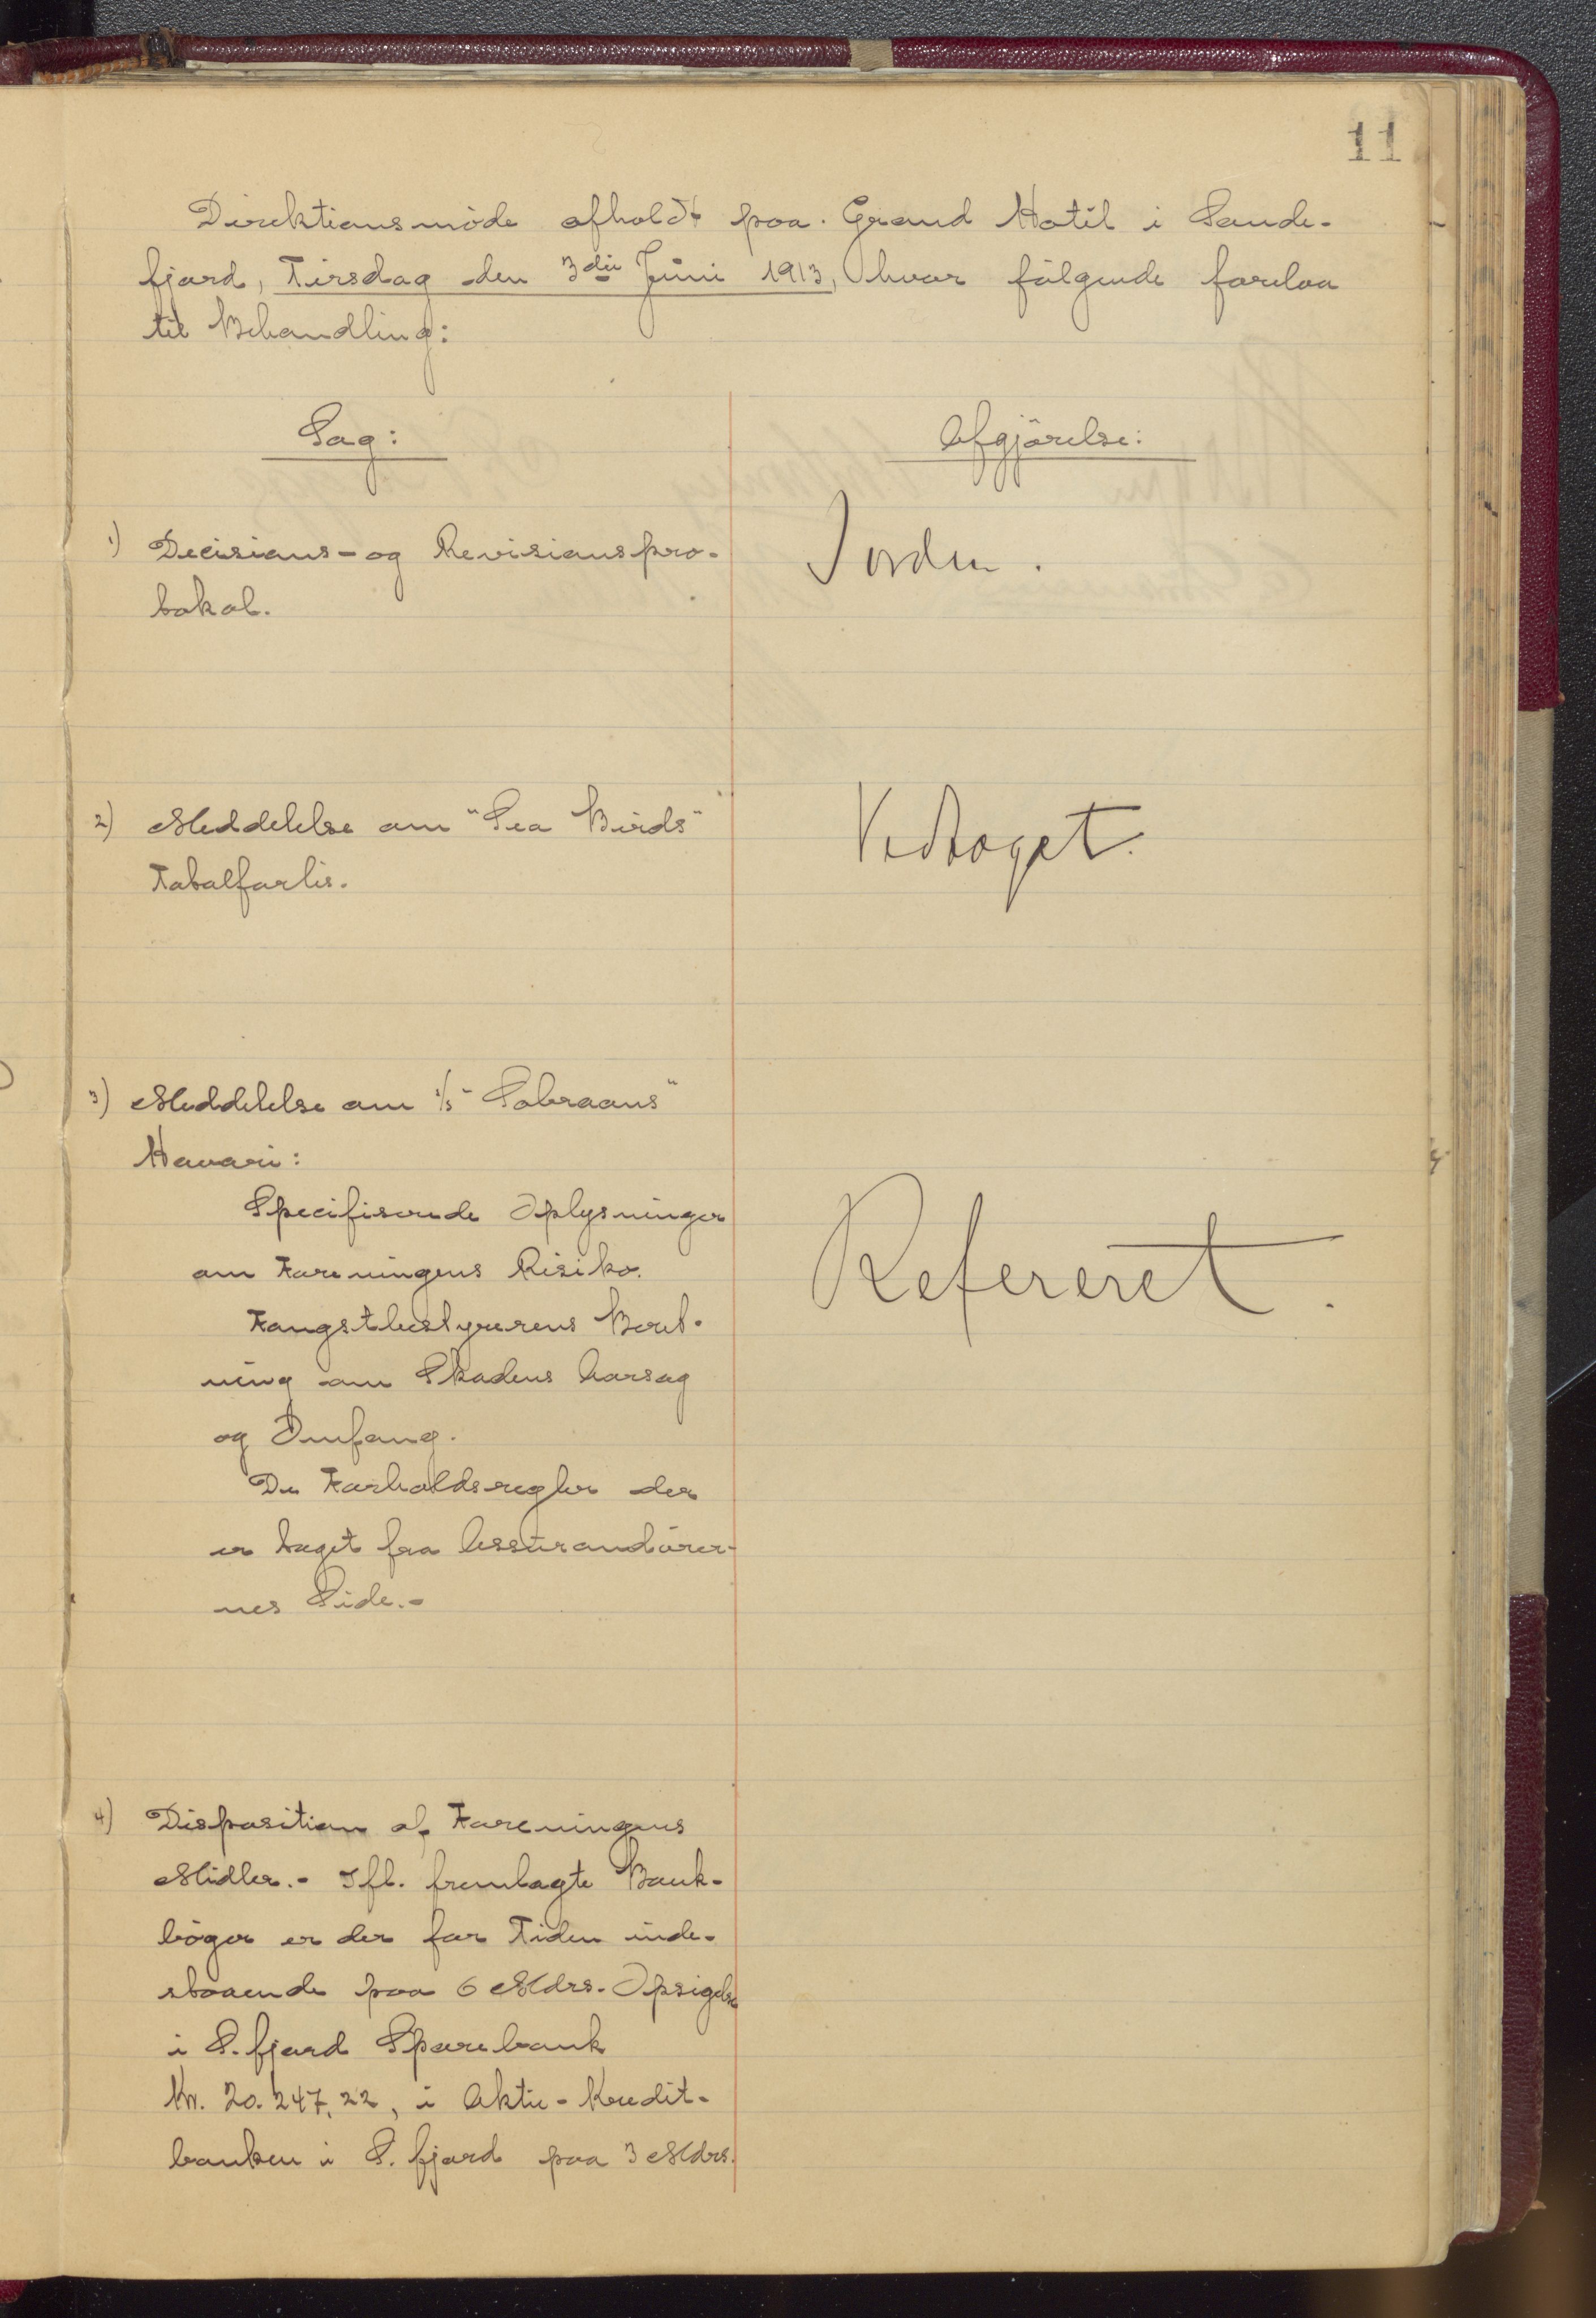 11
Direktionsmöde afholdt paa Grand Hotel i Sande-
fjord, Tirsdag den 3die Juni 1913, hvor fölgende forelaa
til Behandling:
Sag:
Afgjörelse:
1) Decisions- og Revisionspro-
tokol.
Iorden.
2) Meddelelse om "Sea Birds"
Totalforlis.
Vedtaget.
3) Meddelelse om s/s "Sobraons"
Havari:
Specifiserede Oplysninger
om Foreningens Risiko.
Fangstbestyrerens Beret-
ning om Skadens Aarsag
og Omfang.
De Forholdsregler der
er taget fra Assurandörer-
nes Side.-
Refereret.
4) Disposition af Foreningens
Midler.- Ifl. fremlagte Bank-
böger er der for Tiden inde-
staaende paa 6 Mdrs. Opsigelse
i S.fjord Sparebank
Kr. 20.247,22, i Aktie-Kredit-
banken i S.fjord paa 3 Mdrs.